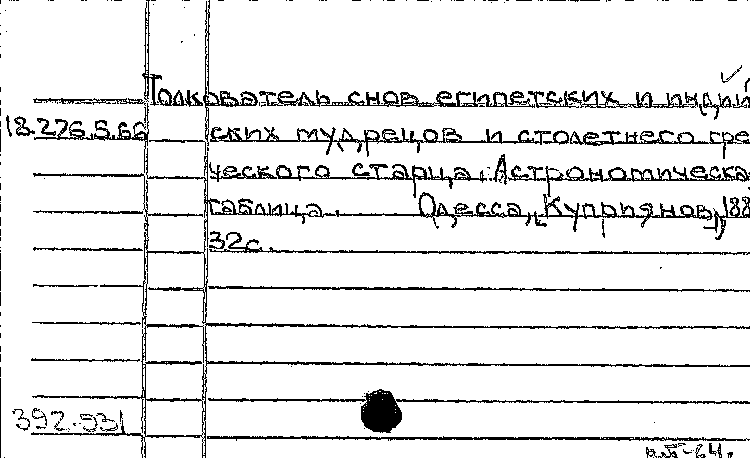 Толкователь снов египетских и индий
18.276.5.66 ских мудрецов и столетнего гре
ческого старца. Астрономическа
таблица. Одесса, [Куприянов], 188
32с.
392.931